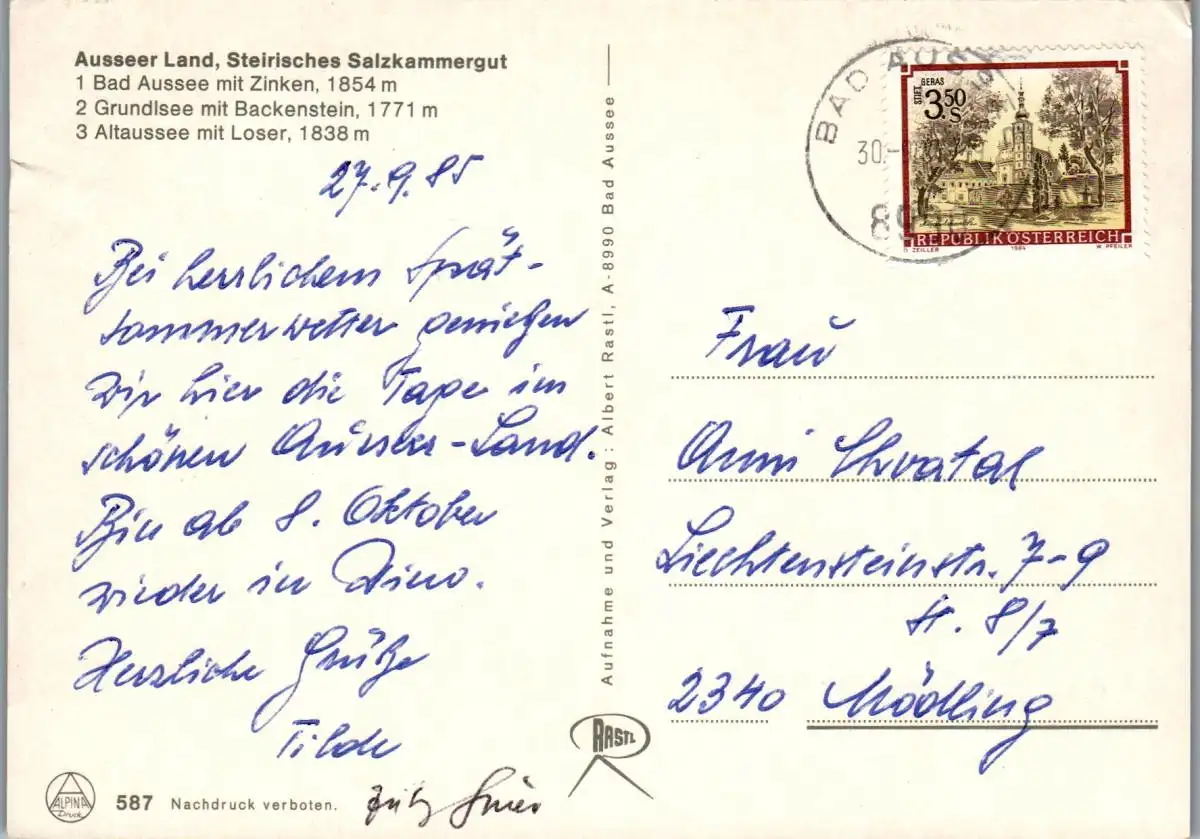 Ausseer Land, Steirisches Salzkammergut
1 Bad Aussee mit Zinken, 1854 m
2 Grundlsee mit Backenstein, 1771 m
3 Altaussee mit Loser, 1838 m
27.9.85
Bei herrlichem Spät-
sommerwetter genießen
wir hier die Tage im
schönen Ausseer-Land.
Bin ab 8. Oktober
wieder in
Herzliche Grüße
Tilde
Fritz
ALPINA
Druck
587 Nachdruck verboten.
Aufnahme und Verlag: Albert Rastl, A-8990 Bad Aussee
RASTL
BAD AUS
30.
STIFT GERAS
3.50
S
REPUBLIK ÖSTERREICH
ZEILLER 1984 W. PFEILER
Frau
Anni Chvatal
Liechtensteinstr. 7-9
St. 8/7
2340 Mödling